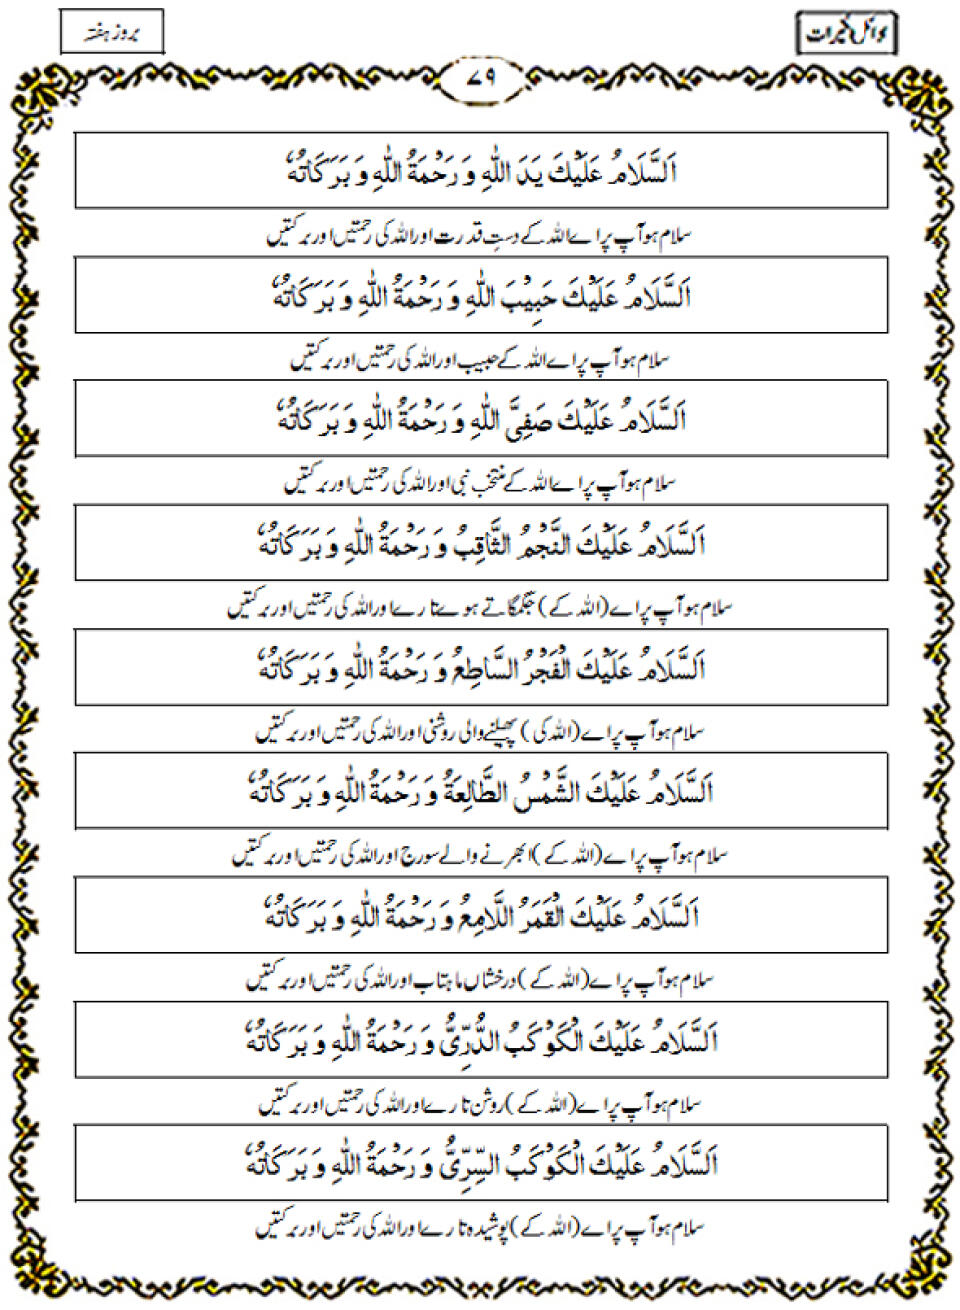 دلائل الخیرات
بروز ہفتہ
۷۹
اَلسَّلَامُ عَلَیْكَ یَدَ اللّٰهِ وَ رَحْمَةُ اللّٰهِ وَ بَرَكَاتُهٗ
سلام ہو آپ پر اے اللہ کے دستِ قدرت اور اللہ کی رحمتیں اور برکتیں
اَلسَّلَامُ عَلَیْكَ حَبِیْبَ اللّٰهِ وَ رَحْمَةُ اللّٰهِ وَ بَرَكَاتُهٗ
سلام ہو آپ پر اے اللہ کے حبیب اور اللہ کی رحمتیں اور برکتیں
اَلسَّلَامُ عَلَیْكَ صَفِیَّ اللّٰهِ وَ رَحْمَةُ اللّٰهِ وَ بَرَكَاتُهٗ
سلام ہو آپ پر اے اللہ کے منتخب نبی اور اللہ کی رحمتیں اور برکتیں
اَلسَّلَامُ عَلَیْكَ النَّجْمُ الثَّاقِبُ وَ رَحْمَةُ اللّٰهِ وَ بَرَكَاتُهٗ
سلام ہو آپ پر اے (اللہ کے) جگمگاتے ہوے تارے اور اللہ کی رحمتیں اور برکتیں
اَلسَّلَامُ عَلَیْكَ الْفَجْرُ السَّاطِعُ وَ رَحْمَةُ اللّٰهِ وَ بَرَكَاتُهٗ
سلام ہو آپ پر اے (اللہ کی) پھیلنے والی روشنی اور اللہ کی رحمتیں اور برکتیں
اَلسَّلَامُ عَلَیْكَ الشَّمْسُ الطَّالِعَةُ وَ رَحْمَةُ اللّٰهِ وَ بَرَكَاتُهٗ
سلام ہو آپ پر اے (اللہ کے) ابھرنے والے سورج اور اللہ کی رحمتیں اور برکتیں
اَلسَّلَامُ عَلَیْكَ الْقَمَرُ اللَّامِعُ وَ رَحْمَةُ اللّٰهِ وَ بَرَكَاتُهٗ
سلام ہو آپ پر اے (اللہ کے) درخشاں ماہتاب اور اللہ کی رحمتیں اور برکتیں
اَلسَّلَامُ عَلَیْكَ الْكَوْكَبُ الدُّرِّیُّ وَ رَحْمَةُ اللّٰهِ وَ بَرَكَاتُهٗ
سلام ہو آپ پر اے (اللہ کے) روشن تارے اور اللہ کی رحمتیں اور برکتیں
اَلسَّلَامُ عَلَیْكَ الْكَوْكَبُ السِّرِّیُّ وَ رَحْمَةُ اللّٰهِ وَ بَرَكَاتُهٗ
سلام ہو آپ پر اے (اللہ کے) پوشیدہ تارے اور اللہ کی رحمتیں اور برکتیں